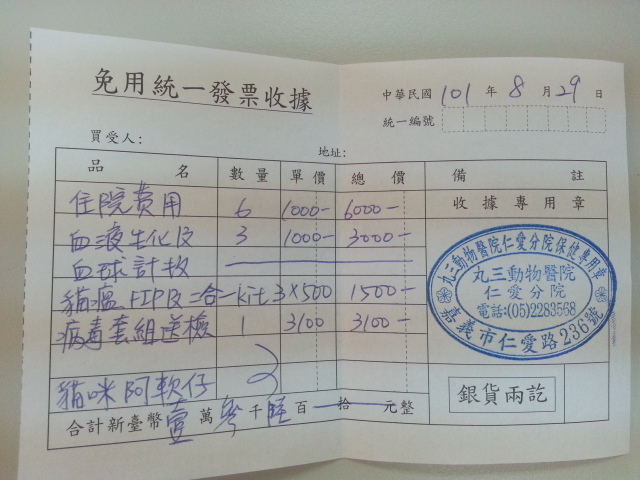 免用統一發票收據
中華民國 101 年 8 月 29 日
統一編號
買受人：
地址：
品 名 數量 單價 總價 備註
住院費用 6 1000- 6000-
收據專用章
血液生化及 3 1000- 3000-
血球計數
貓瘟 FIP及二合一kit 3×500 1500-
病毒套組送檢 1 3100 3100-
貓咪阿軟仔
合計新臺幣壹萬參千陸百拾元整
丸三動物醫院仁愛分院保健專用章
丸三動物醫院
仁愛分院
電話:(05)2283568
嘉義市仁愛路236號
銀貨兩訖